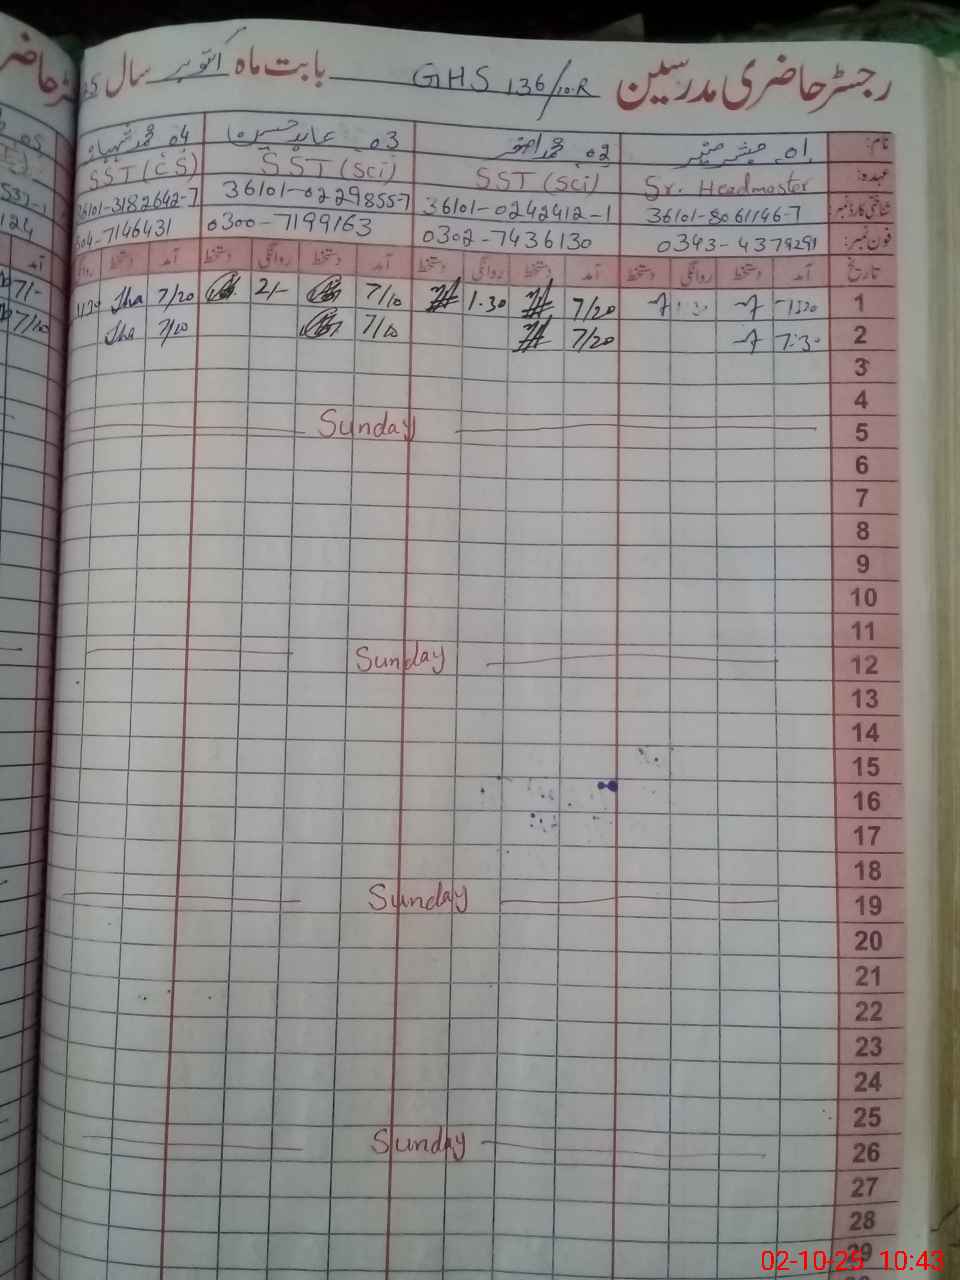 رجسٹر حاضری مدرسین GHS 136/10.R بابت ماہ اکتوبر سال
نام: 01. مبشر منیر 02. محمد اصغر 03. عابد حسین 04 محمد شہباز
عہدہ: Sr. Headmaster SST (Sci) SST (Sci) SST (CS)
شناختی کارڈ نمبر: 36101-8061146-7 36101-0242412-1 36101-0229855-7 36101-3182642-7
فون نمبر: 0343-4379291 0302-7436130 0300-7199163 304-7146431
تاریخ آمد دستخط روانگی دستخط آمد دستخط روانگی دستخط آمد دستخط روانگی دستخط آمد دستخط
1 7/20 1.30 7/10 2/- 7/20
2 7:30 7/20 7/10 7/10
3
4
5 Sunday
6
7
8
9
10
11
12 Sunday
13
14
15
16
17
18
19 Sunday
20
21
22
23
24
25
26 Sunday
27
28
29
02-10-25 10:43